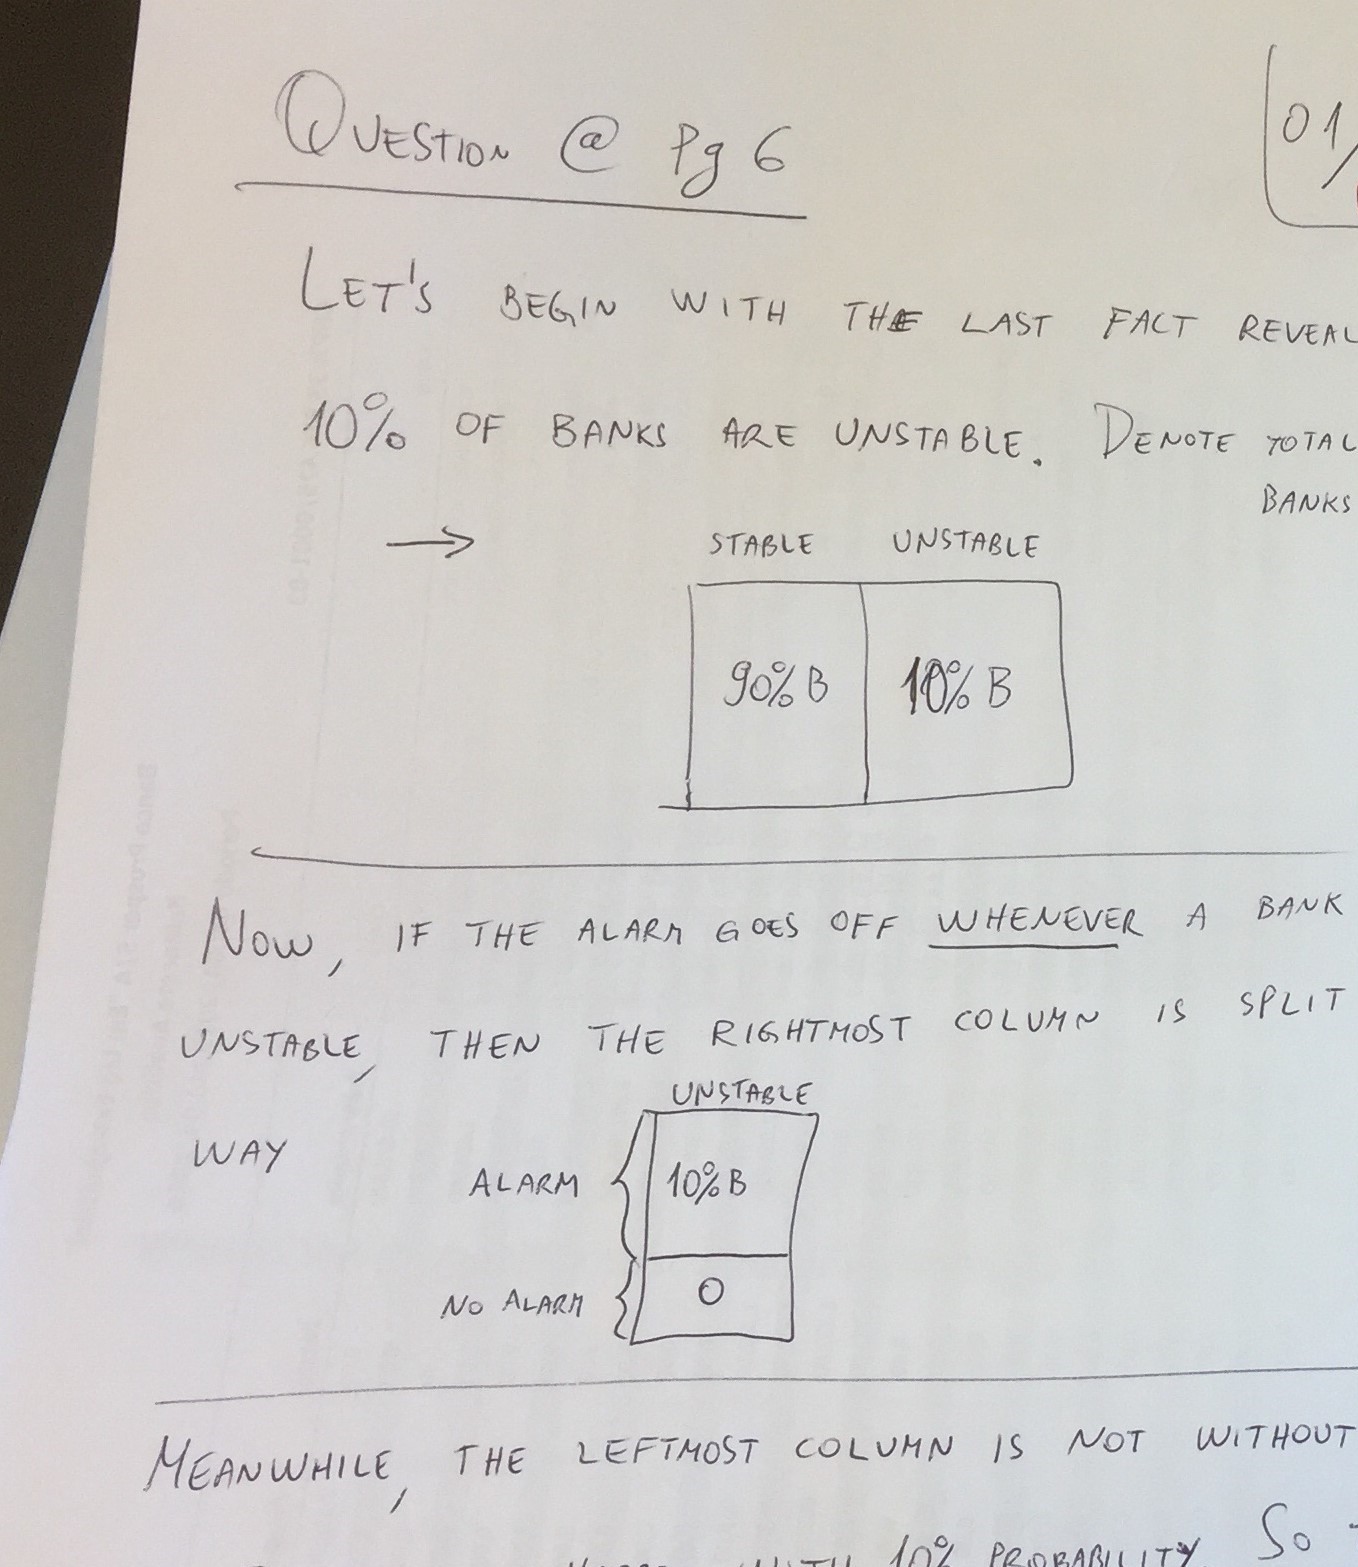 QUESTION @ Pg 6
01/
LET'S BEGIN WITH THE LAST FACT REVEAL
10% OF BANKS ARE UNSTABLE. DENOTE TOTAL
BANKS
→ STABLE UNSTABLE
90% B 10% B
NOW, IF THE ALARM GOES OFF WHENEVER A BANK
UNSTABLE, THEN THE RIGHTMOST COLUMN IS SPLIT
UNSTABLE
WAY
ALARM 10% B
NO ALARM 0
MEANWHILE, THE LEFTMOST COLUMN IS NOT WITHOUT
WITH 10% PROBABILITY. SO